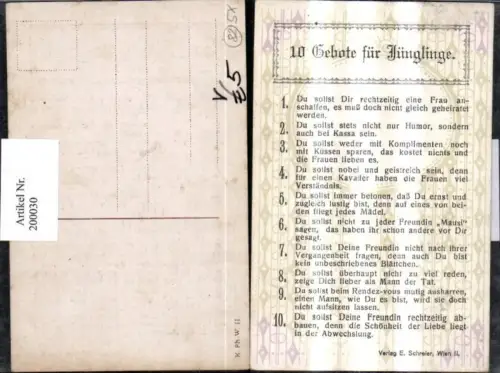 Artikel Nr.
200030
5
K. Ph. W. II.
10 Gebote für Jünglinge.
1. Du sollst Dir rechtzeitig eine Frau an-
schaffen, es muß doch nicht gleich geheiratet
werden.
2. Du sollst stets nicht nur Humor, sondern
auch bei Kassa sein.
3. Du sollst weder mit Komplimenten noch
mit Küssen sparen, das kostet nichts und
die Frauen lieben es.
4. Du sollst nobel und geistreich sein, denn
für einen Kavalier haben die Frauen viel
Verständnis.
5. Du sollst immer betonen, daß Du ernst und
zugleich lustig bist, denn auf eines von bei-
den fliegt jedes Mädel.
6. Du sollst nicht zu jeder Freundin „Mausi"
sagen, das haben ihr schon andere vor Dir
gesagt.
7. Du sollst Deine Freundin nicht nach ihrer
Vergangenheit fragen, denn auch Du bist
kein unbeschriebenes Blättchen.
8. Du sollst überhaupt nicht zu viel reden,
zeige Dich lieber als Mann der Tat.
9. Du sollst beim Rendez-vous mutig ausharren,
einen Mann, wie Du es bist, wird sie doch
nicht aufsitzen lassen.
10. Du sollst Deine Freundin rechtzeitig ab-
bauen, denn die Schönheit der Liebe liegt
in der Abwechslung.
Verlag E. Schreier, Wien II.